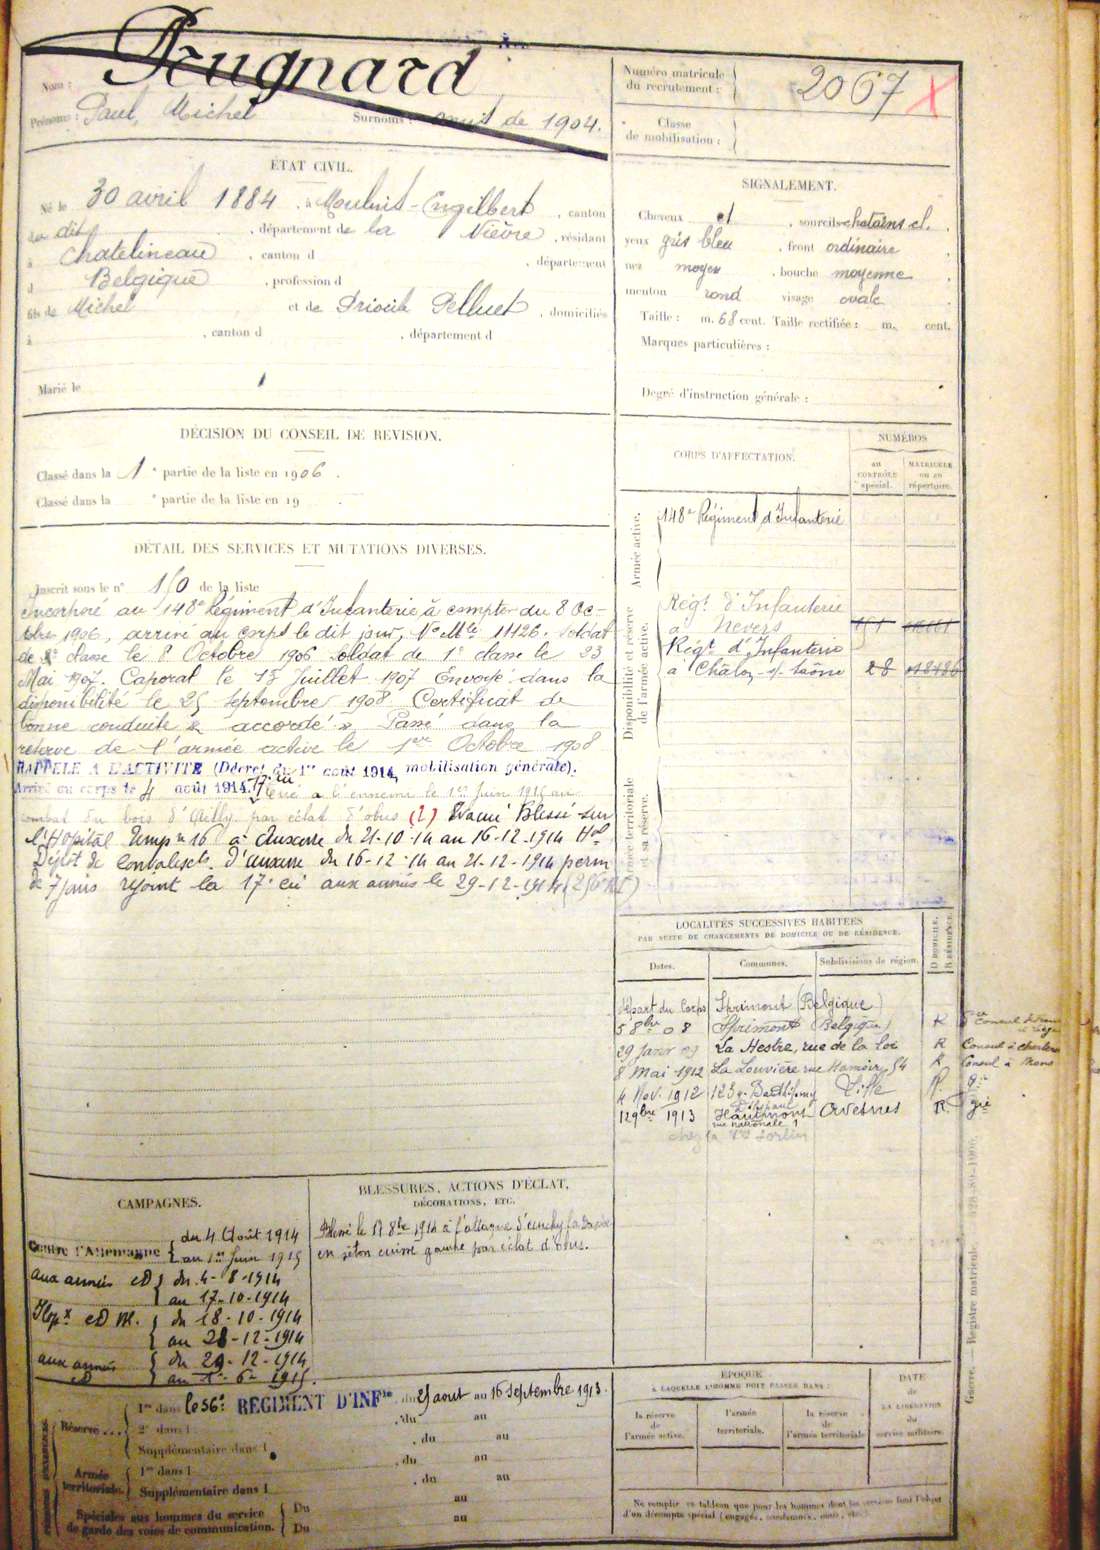 Nom : Peugnard
Numéro matricule du recrutement : 2067 X
Prénoms : Paul, Michel Surnoms : de 1904.
Classe de mobilisation :
ÉTAT CIVIL.
Né le 30 avril 1884, à Moulins-Engilbert, canton
du dit, département de la Nièvre, résidant
à Chatelineau, canton d , département
d Belgique, profession d
fils de Michel et de Pelluet, domiciliés
à , canton d , département d
Marié le
SIGNALEMENT.
Cheveux et, sourcils chatains cl.
yeux gris bleu, front ordinaire
nez moyen, bouche moyenne
menton rond visage ovale
Taille : m. 68 cent. Taille rectifiée : m. cent.
Marques particulières :
Degré d'instruction générale :
DÉCISION DU CONSEIL DE REVISION.
Classé dans la 1e partie de la liste en 1906.
Classé dans la e partie de la liste en 19
DÉTAIL DES SERVICES ET MUTATIONS DIVERSES.
Inscrit sous le n° 150 de la liste
Incorporé au 148e Régiment d'Infanterie à compter du 8 Oc-
tobre 1906, arrivé au corps le dit jour, No Mle 11126. Soldat
de 2e classe le 8 Octobre 1906 Soldat de 1e classe le 23
Mai 1907. Caporal le 15 Juillet 1907 Envoyé dans la
disponibilité le 25 Septembre 1908 Certificat de
bonne conduite « accordé » Passé dans la
réserve de l'armée active le 1er Octobre 1908
RAPPELÉ A L'ACTIVITÉ (Décret du 1er août 1914, mobilisation générale).
Arrivé au corps le 4 août 1914. 17e Cie Tué à l'ennemi le 1er Juin 1915 au
combat du bois d'Ailly par éclat d'obus (2) Evacué Blessé sur
l'Hôpital Temp re 16 à Auxerre du 21-10-14 au 16-12-1914 Hal
Dépôt de Convalescts. d'Auxerre du 16-12-14 au 21-12-1914 perm
de 7 jours rejoint la 17e Cie aux armées le 29-12-1914 (256 RI)
CORPS D'AFFECTATION.
NUMÉROS
AU CONTRÔLE spécial.
MATRICULE ou au répertoire.
Armée active.
148e Régiment d'Infanterie
Disponibilité et réserve de l'armée active.
Régt d'Infanterie
à Nevers
Régt d'Infanterie
à Châlon s/ Saône 28 018186
Armée territoriale et sa réserve.
LOCALITÉS SUCCESSIVES HABITÉES
PAR SUITE DE CHANGEMENTS DE DOMICILE OU DE RÉSIDENCE.
Dates. Communes. Subdivisions de région. D DOMICILE. R RÉSIDENCE.
départ du Corps Sprimont (Belgique)
5 8bre 08 Sprimont (Belgique) R
29 Janvr 09 La Hestre, rue de la Loi R Consul à Charleroi
8 Mai 1912 La Louvière rue Hamoir, 54 R Consul à Mons
4 Nov. 1912 123 r. Barthélemy Lille R.
12 9bre 1913 Hautmont Avesnes R.
rue nationale 1
CAMPAGNES.
Contre l'Allemagne { du 4 Août 1914
au 1er Juin 1915
aux armées CD { du 4-8-1914
au 17-10-1914
Hopx CD M. { du 18-10-1914
au 28-12-1914
aux armées CD { du 29-12-1914
au 1er-6-1915.
BLESSURES, ACTIONS D'ÉCLAT,
DÉCORATIONS, ETC.
Blessé le 17 8bre 1914 à l'attaque d'
en séton cuisse gauche par éclat d'obus.
Réserve { 1re dans le 56e REGIMENT D'INFie, du 25 aout au 16 septembre 1913.
2e dans l , du au
Supplémentaire dans l , du au
Armée territoriale. { 1re dans l , du au
Supplémentaire dans l au
Spéciales aux hommes du service de garde des voies de communication. { Du au
Du
ÉPOQUE
A LAQUELLE L'HOMME DOIT PASSER DANS :
la réserve de l'armée active. l'armée territoriale. la réserve de l'armée territoriale
DATE DE LA LIBÉRATION du service militaire.
Ne remplir ce tableau que pour les hommes dont les services font l'objet
d'un décompte spécial (engagés, condamnés, omis, etc.)
Guerre. — Registre matricule.